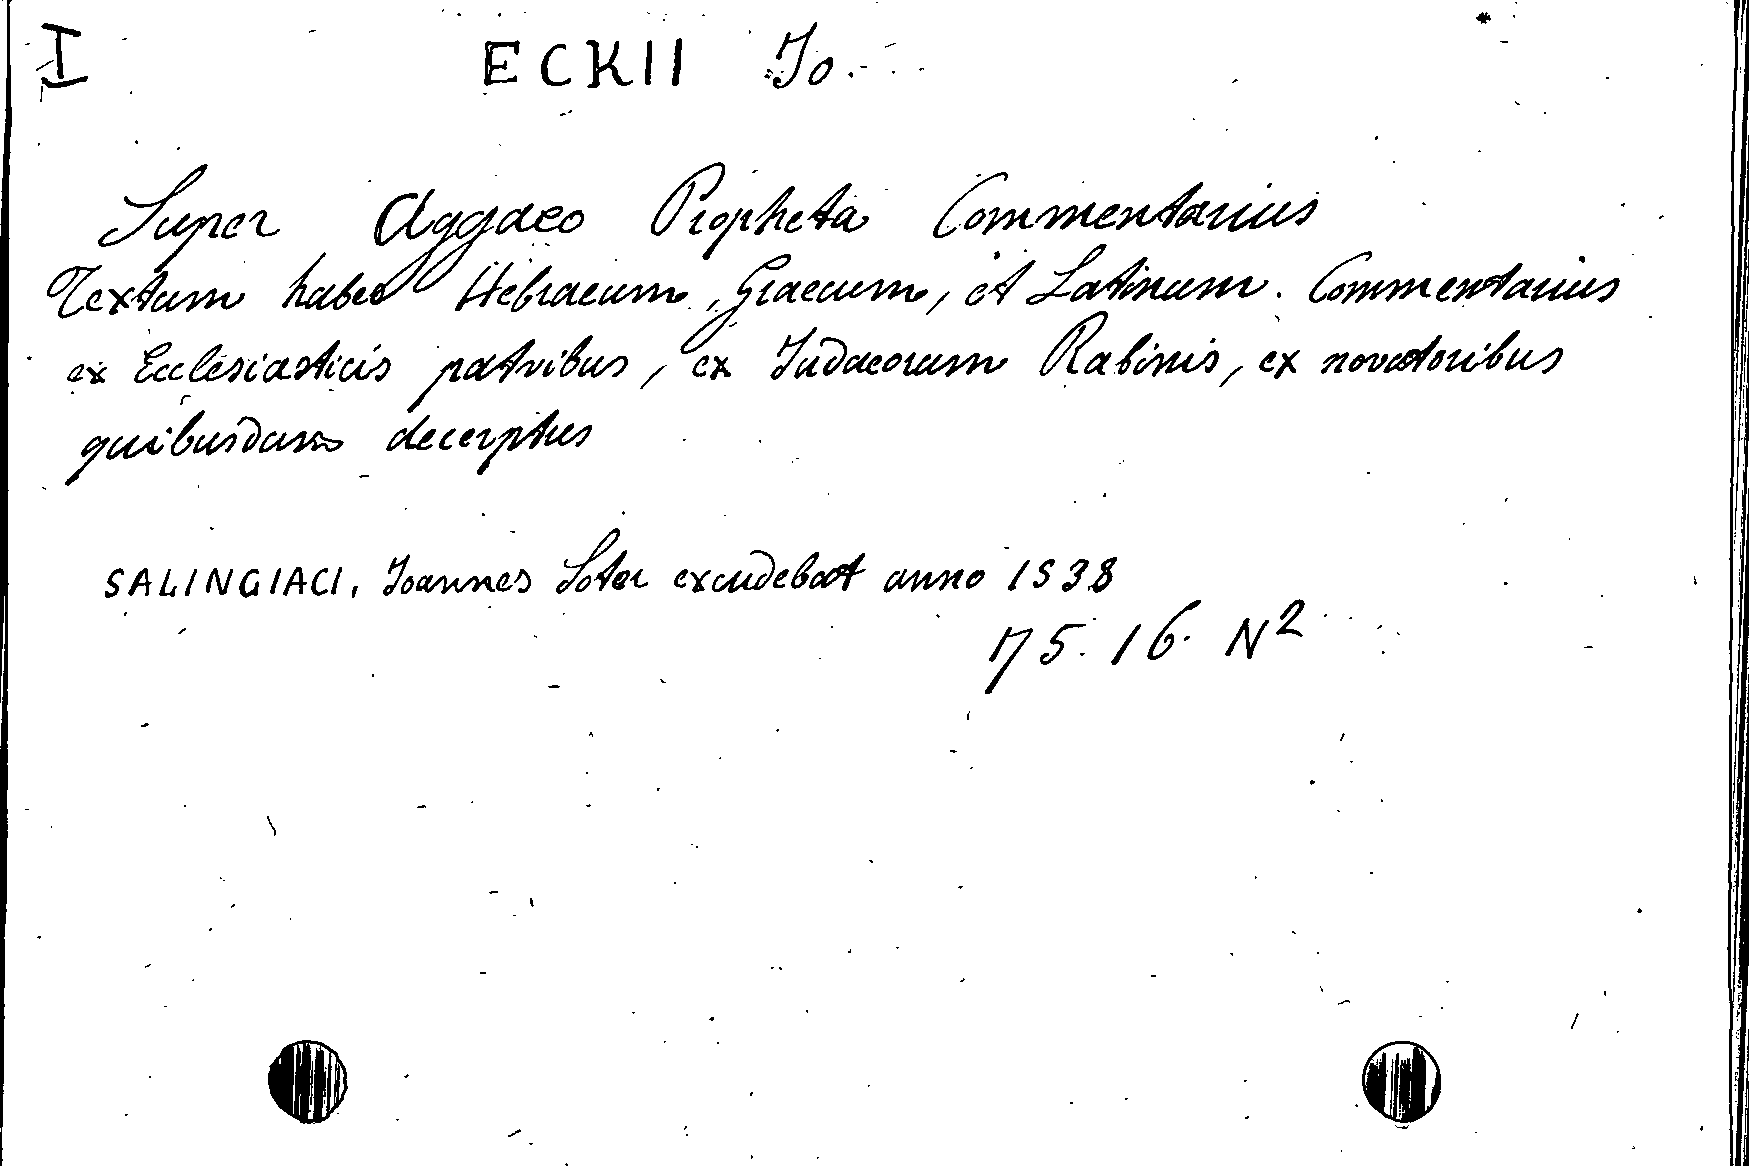 I
ECKII Jo.
Super Aggaeo Propheta Commentarius
Textum habes Hebraeum, Graecum, et Latinum. Commentarius
ex Ecclesiasticis patribus, ex Judaeorum Rabinis, ex novatoribus
quibusdam decerptus
SALINGIACI, Joannes Soter excudebat anno 1538
75. 16. N2